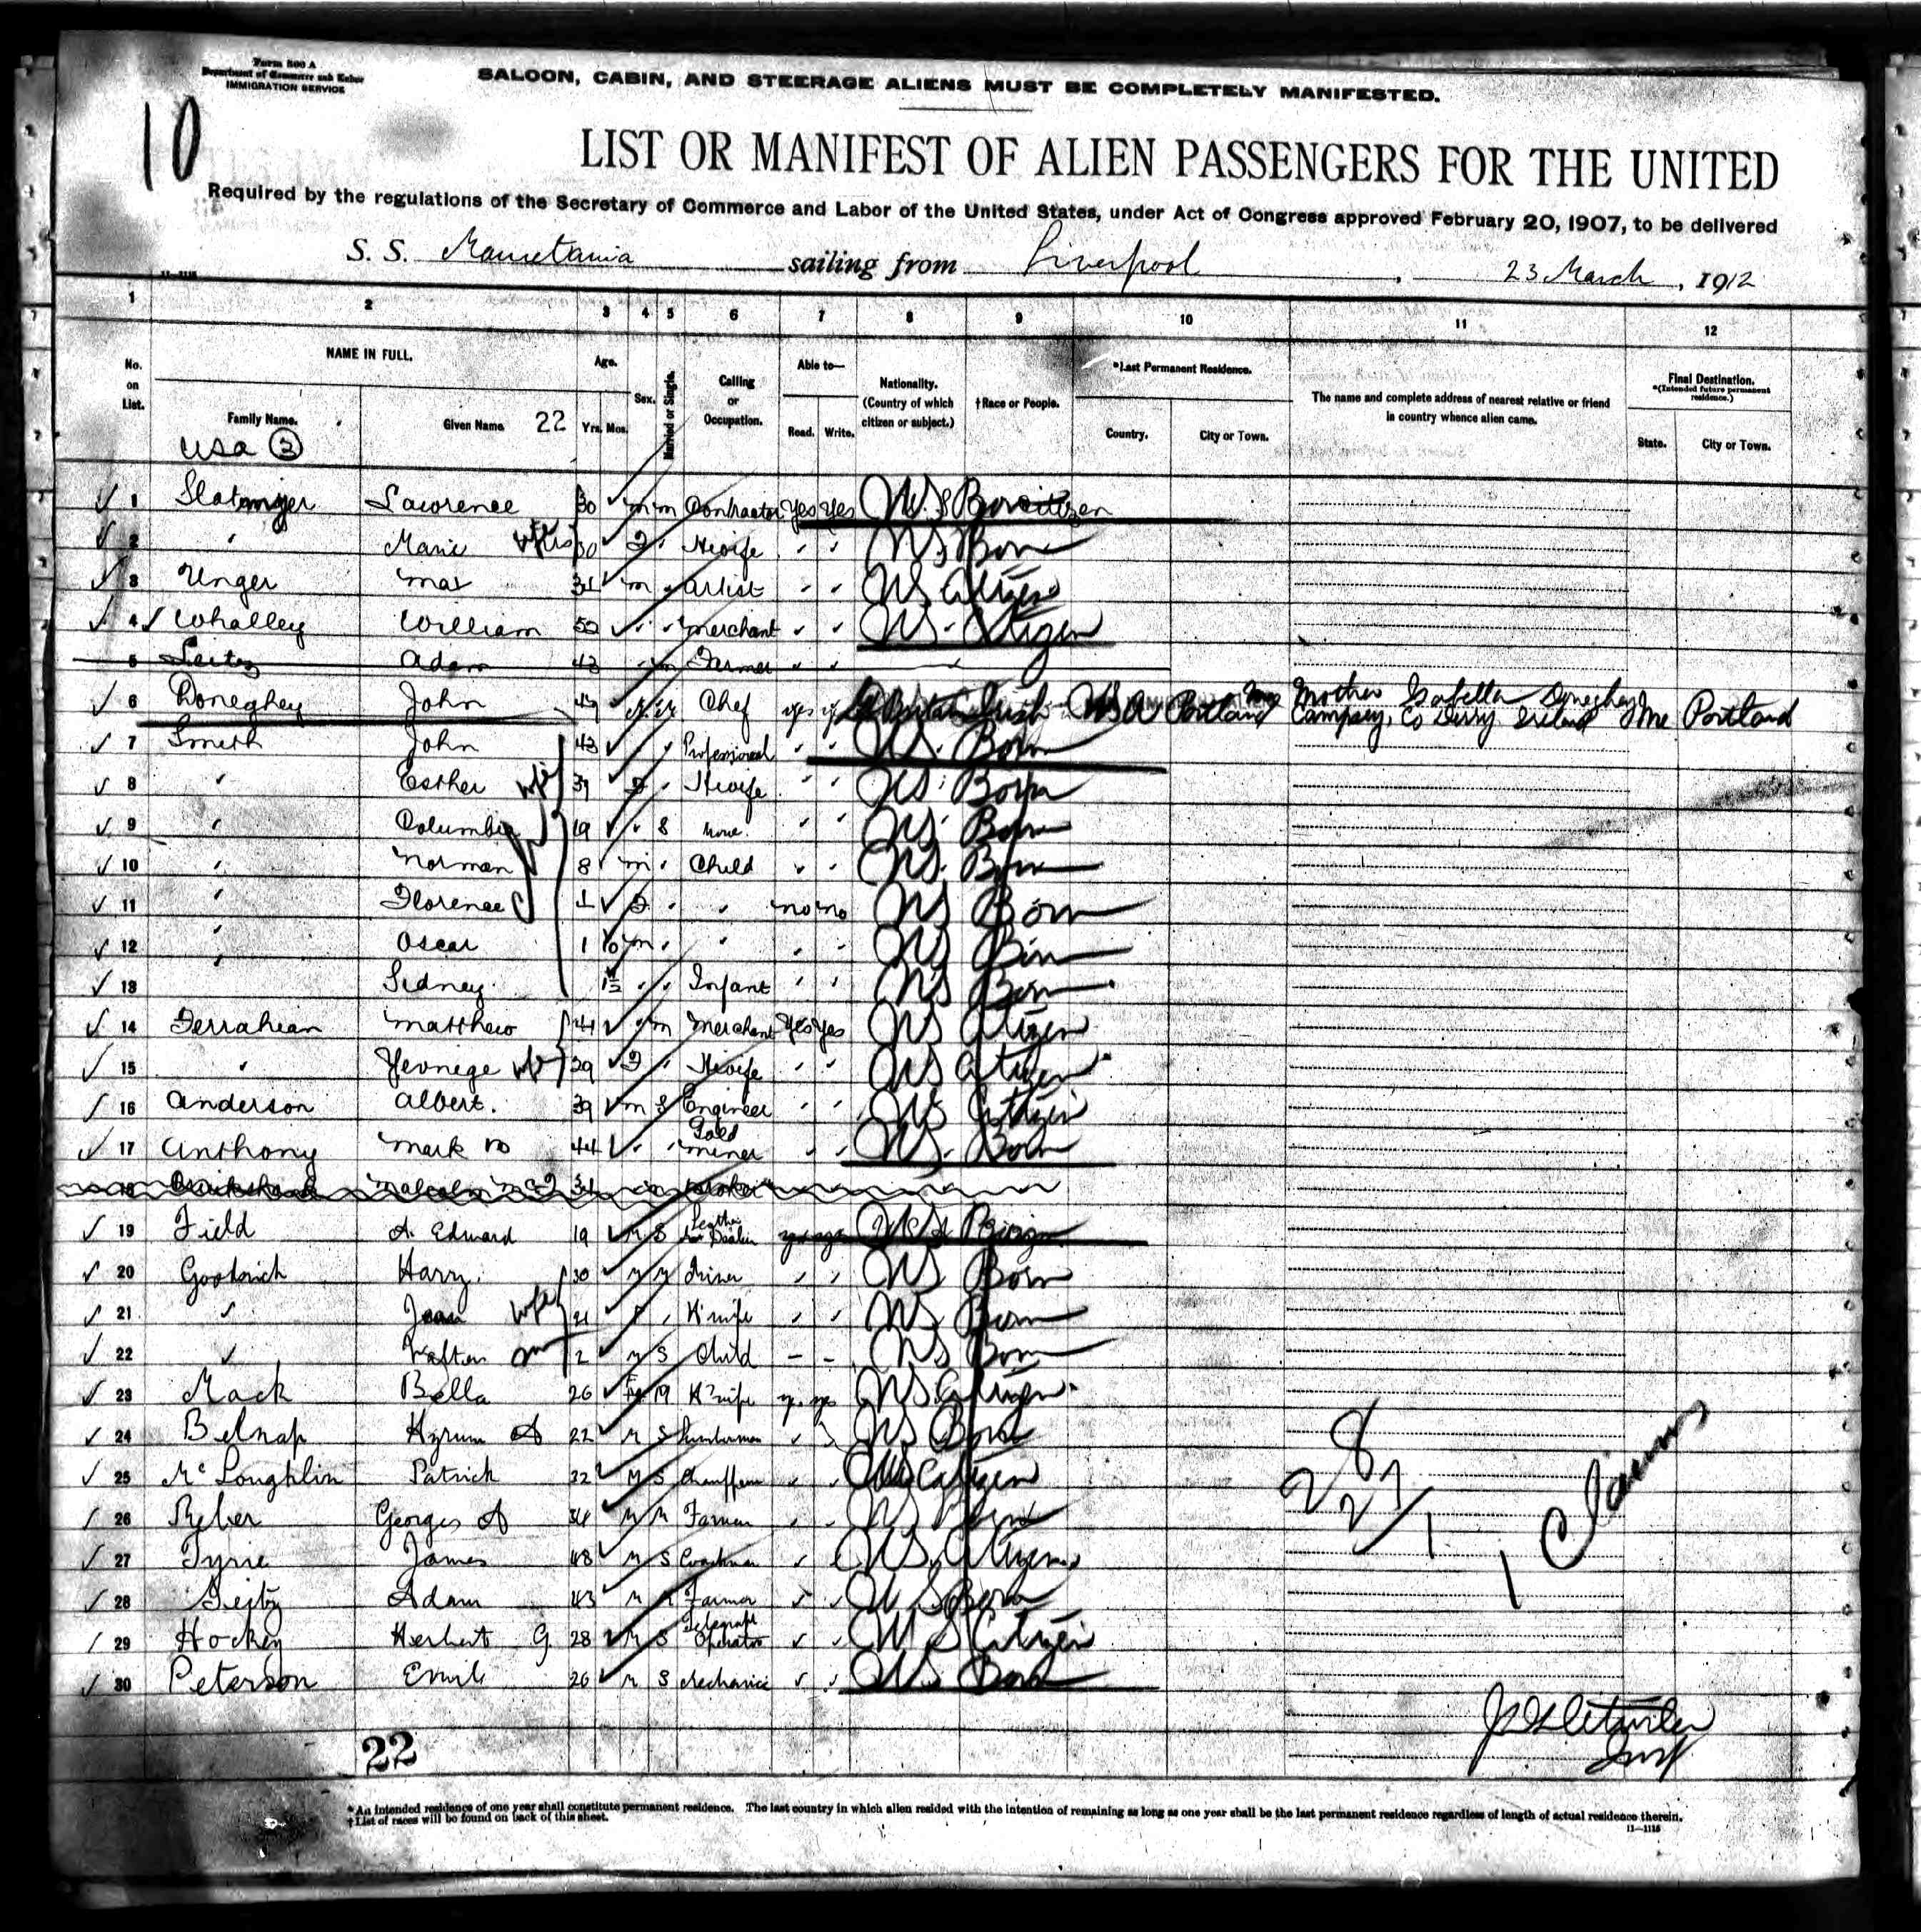 Form 500 A
Department of Commerce and Labor
IMMIGRATION SERVICE
SALOON, CABIN, AND STEERAGE ALIENS MUST BE COMPLETELY MANIFESTED.
10
LIST OR MANIFEST OF ALIEN PASSENGERS FOR THE UNITED
Required by the regulations of the Secretary of Commerce and Labor of the United States, under Act of Congress approved February 20, 1907, to be delivered
S. S. Mauretania sailing from Liverpool, 23 March, 1912
1 2 3 4 5 6 7 8 9 10 11 12
No. on List. NAME IN FULL. Family Name. Given Name 22 Age. Yrs. Mos. Sex. Married or Single. Calling or Occupation. Able to— Read. Write. Nationality. (Country of which citizen or subject.) †Race or People. *Last Permanent Residence. Country. City or Town. The name and complete address of nearest relative or friend in country whence alien came. Final Destination. *(Intended future permanent residence.) State. City or Town.
USA 3
1 Lawrence 30 m m Contractor Yes Yes U.S. Citizen
2 " Marie wife 30 F " Hwife " " US Born
3 Unger Max 31 m " Artist " " US Citizen
4 Whalley William 52 " " Merchant " " US. Citizen
5 Adam 43 " m Farmer " "
6 Doneghey John 49 M M Chef yes Irish USA Portland Me Mother Isabella Doneghey Me Portland
Campsey, Co Derry Ireland
7 Smith John 43 " " Professional " " US. Born
8 " Esther wife 39 F " Hwife " " US. Born
9 " Columbia 19 " S None " " US. Born
10 " Norman 8 m " Child " " US. Born
11 " Florence F " " no no US Born
12 " Oscar 1 10 m " " " " US Born
13 " Sidney " " Infant " " US Born
14 Terrahian Matthew 41 " m Merchant Yes Yes US Citizen
15 " Yevnege wife 29 F " Hwife " " US Citizen
16 Anderson Albert. 39 m S Engineer " " US Citizen
17 Anthony Mark 44 " " Gold Miner " " US. Born
18 Malcolm 31
19 Field A. Edward 19 M S Leather Dealer
20 Goodrich Harry. 30 M M " " US Born
21 " wife 21 F " H'wife " " US Born
22 " 2 M S Child - - US Born
23 Mack Bella 26 F M H'wife yes yes US Citizen
24 Belnap Hyrum A 22 M S Lumberman " " US Born
25 McLoughlin Patrick 22 M S Chauffeur " " US Citizen
26 Reber Georges A 34 M M Farmer " " US Born
27 Tyrie James 48 M S Coachman " " US. Citizen
28 Adam 43 M M Farmer " " US Born
29 Hockey Herbert G. 28 M S Telegraph Operator " " US Citizen
30 Peterson Emil 26 M S Mechanic " " US Born
22
*An intended residence of one year shall constitute permanent residence. The last country in which alien resided with the intention of remaining as long as one year shall be the last permanent residence regardless of length of actual residence therein.
†List of races will be found on back of this sheet.
11—1115